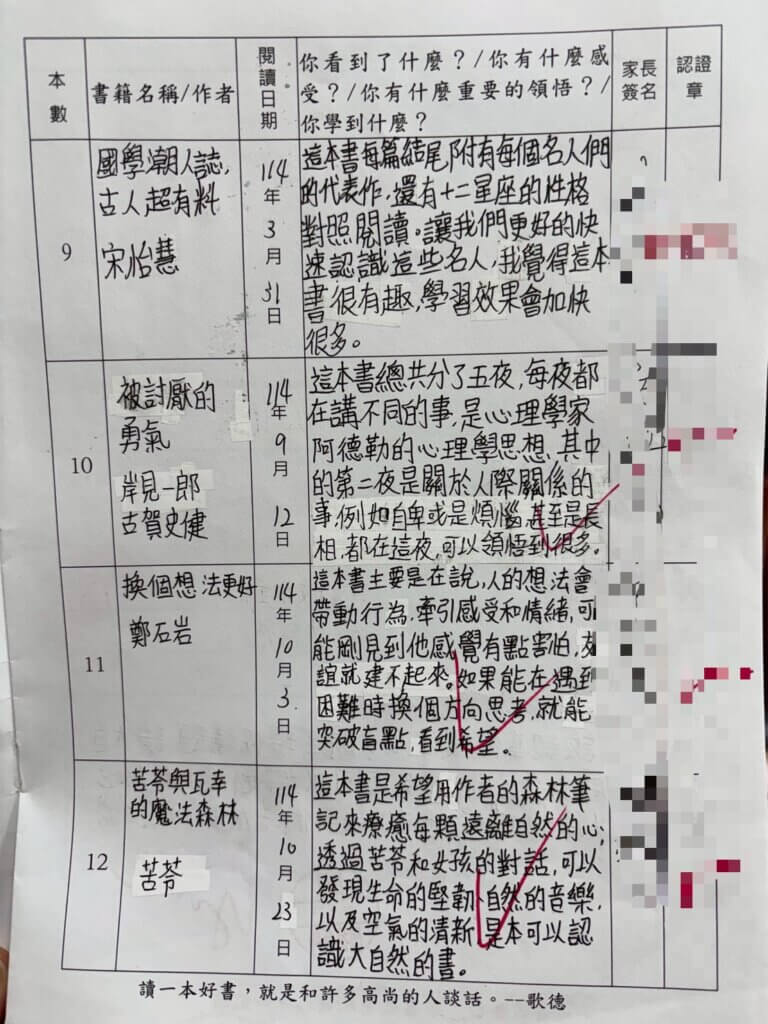 本數
書籍名稱/作者
閱讀日期
你看到了什麼？/你有什麼感
受？/你有什麼重要的領悟？/
你學到什麼？
家長
簽名
認證
章
9
國學潮人誌,
古人超有料
宋怡慧
114
年
3
月
31
日
這本書每篇結尾附有每個名人們
的代表作,還有十二星座的性格
對照閱讀。讓我們更好的快
速認識這些名人,我覺得這本
書很有趣,學習效果會加快
很多。
10
被討厭的
勇氣
岸見一郎
古賀史健
114
年
9
月
12
日
這本書總共分了五夜,每夜都
在講不同的事,是心理學家
阿德勒的心理學思想,其中
的第二夜是關於人際關係的
事,例如自卑或是煩惱,甚至是長
相,都在這夜,可以領悟到很多。
11
換個想法更好
鄭石岩
114
年
10
月
3
日
這本書主要是在說,人的想法會
帶動行為,牽引感受和情緒,可
能剛見到他感覺有點害怕,友
誼就建不起來。如果能在遇到
困難時換個方向思考,就能
突破盲點,看到希望。
12
苦苓與瓦幸
的魔法森林
苦苓
114
年
10
月
23
日
這本書是希望用作者的森林筆
記來療癒每顆遠離自然的心;
透過苦苓和女孩的對話,可以
發現生命的堅韌、自然的音樂,
以及空氣的清新,是本可以認
識大自然的書。
讀一本好書，就是和許多高尚的人談話。--歌德